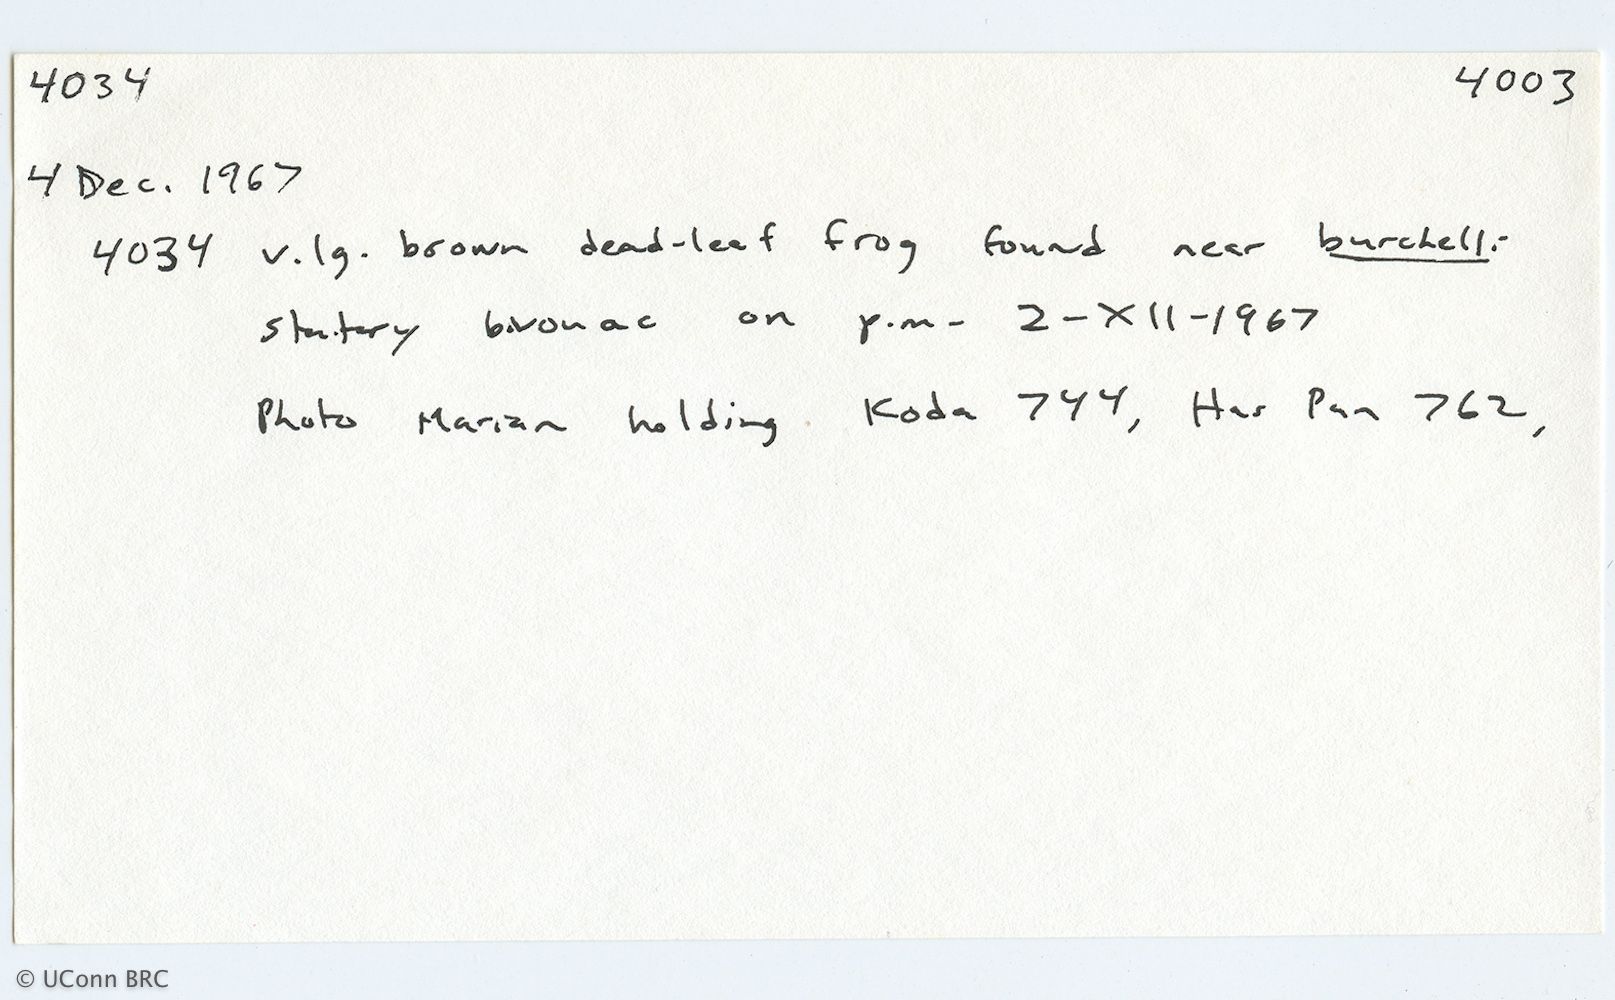 4034 4003
4 Dec. 1967
4034 v.lg. brown dead-leaf frog found near burchelli-
statary bivouac on p.m. 2-XII-1967
Photo Marian holding Koda 744, Har Pan 762,
© UConn BRC